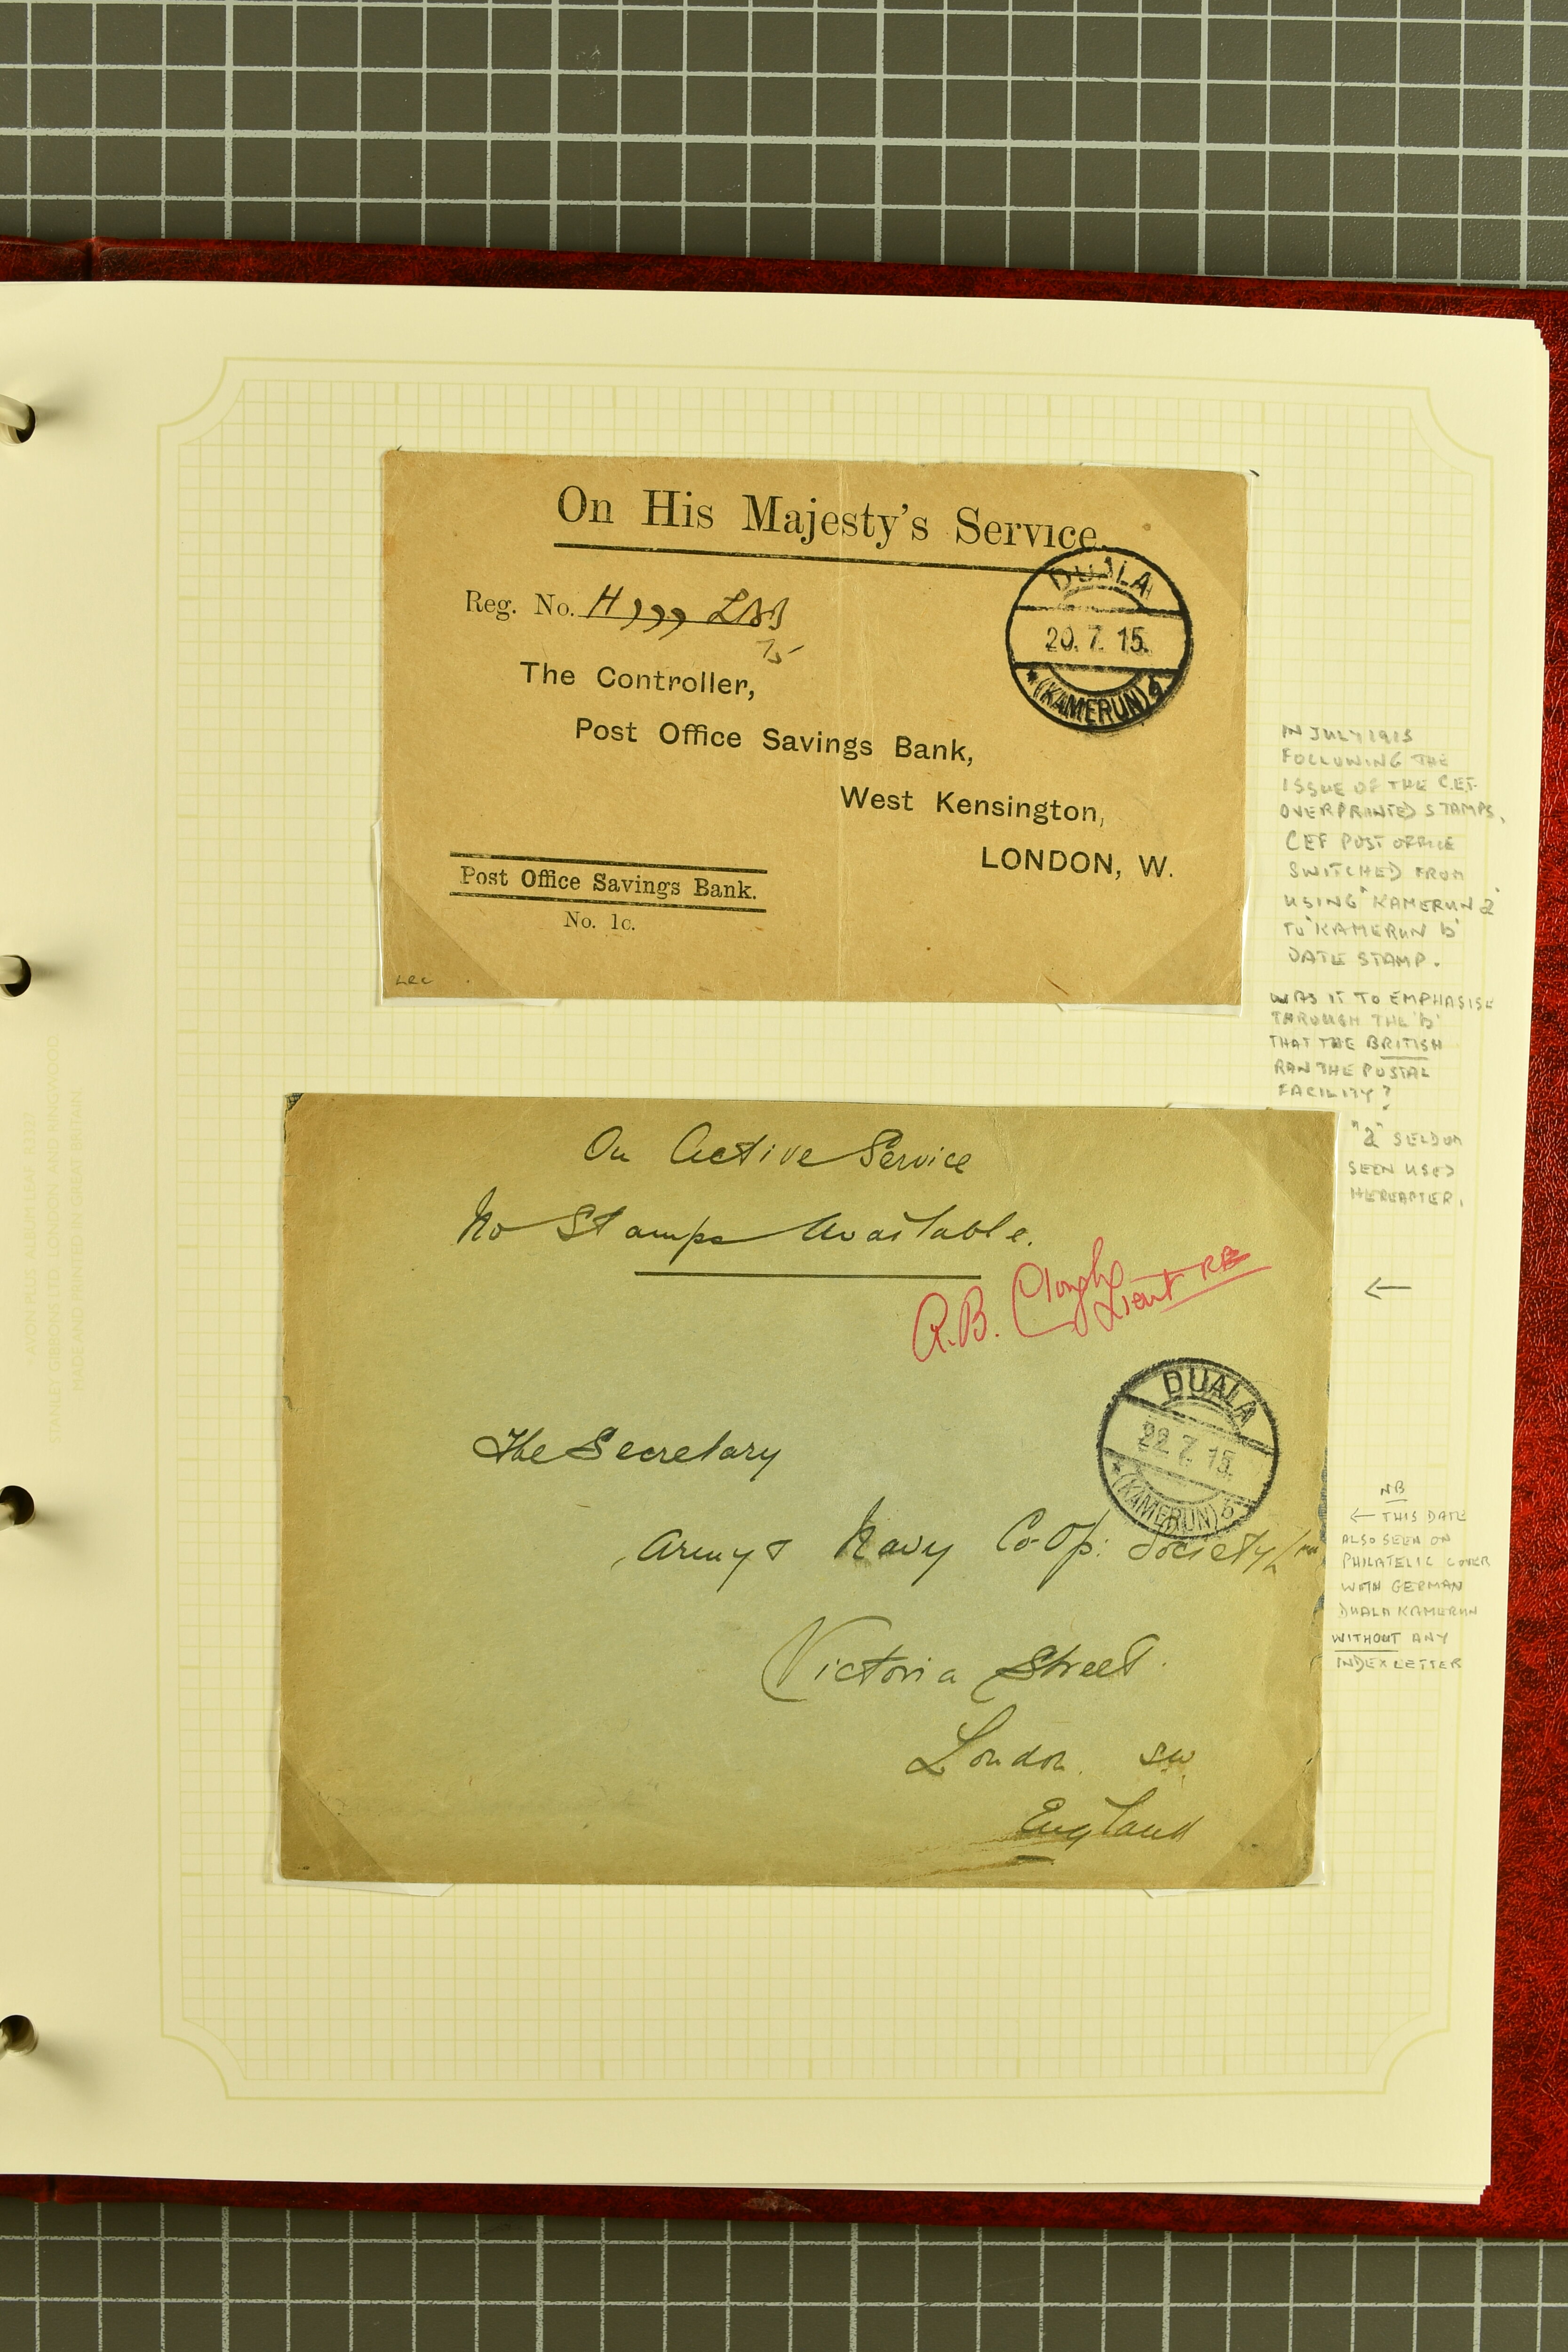 On His Majesty's Service.
Reg. No. H
The Controller,
Post Office Savings Bank,
West Kensington,
LONDON, W.
Post Office Savings Bank.
No. 1c.
DUALA
20. 7. 15.
*(KAMERUN)
IN JULY 1915
FOLLOWING THE
ISSUE OF THE C.E.F.
OVERPRINTED STAMPS,
CEF POST OFFICE
SWITCHED FROM
USING "KAMERUN a"
TO 'KAMERUN b'
DATE STAMP.
WAS IT TO EMPHASISE
THROUGH THE 'b'
THAT THE BRITISH
RAN THE POSTAL
FACILITY?
"a" SELDOM
SEEN USED
HEREAFTER.
On Active Service
No Stamps Available.
A.B. Clough
Lieut RE
DUALA
22. 7. 15.
*(KAMERUN) b
The Secretary
Army & Navy Co-Op: Society
Victoria Street.
London. SW.
England
NB
← THIS DATE
ALSO SEEN ON
PHILATELIC COVER
WITH GERMAN
DUALA KAMERUN
WITHOUT ANY
INDEX LETTER
STANLEY GIBBONS LTD., LONDON & RINGWOOD
MADE AND PRINTED IN GREAT BRITAIN